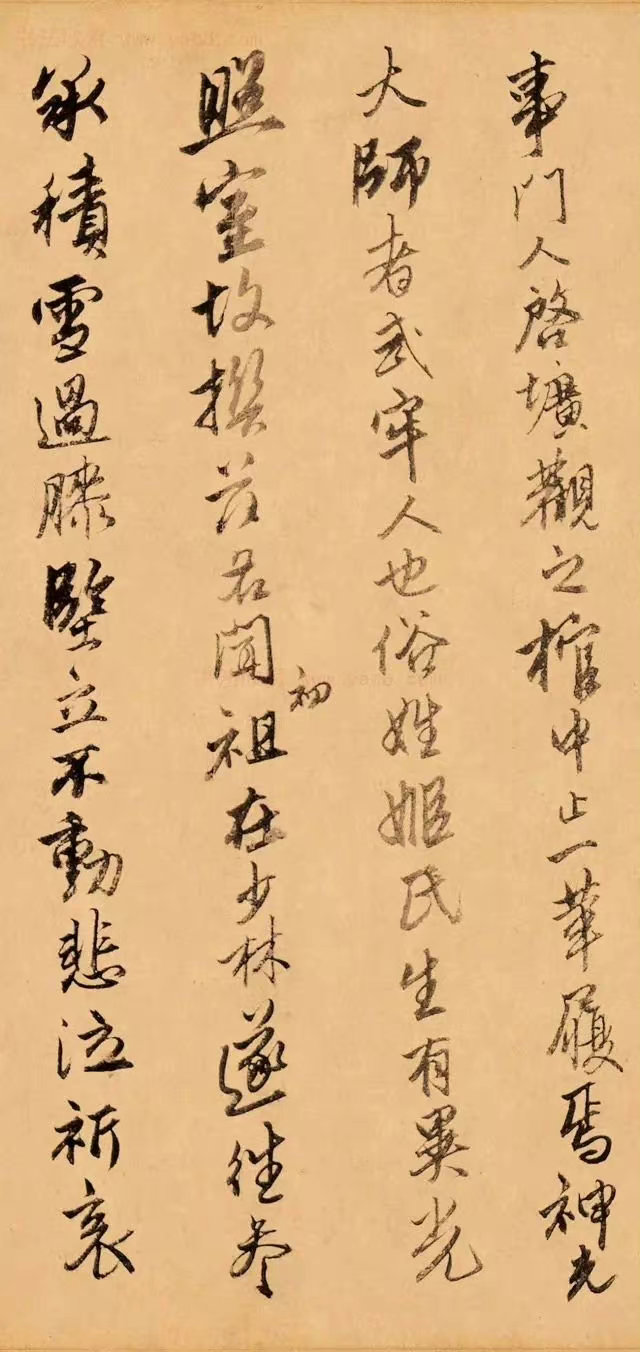 事門人啓壙觀之棺中止一革履焉神光
大師者武牢人也俗姓姬氏生有異光
照室故撰茲名聞初祖在少林遂往參
承積雪過膝堅立不動悲泣祈哀